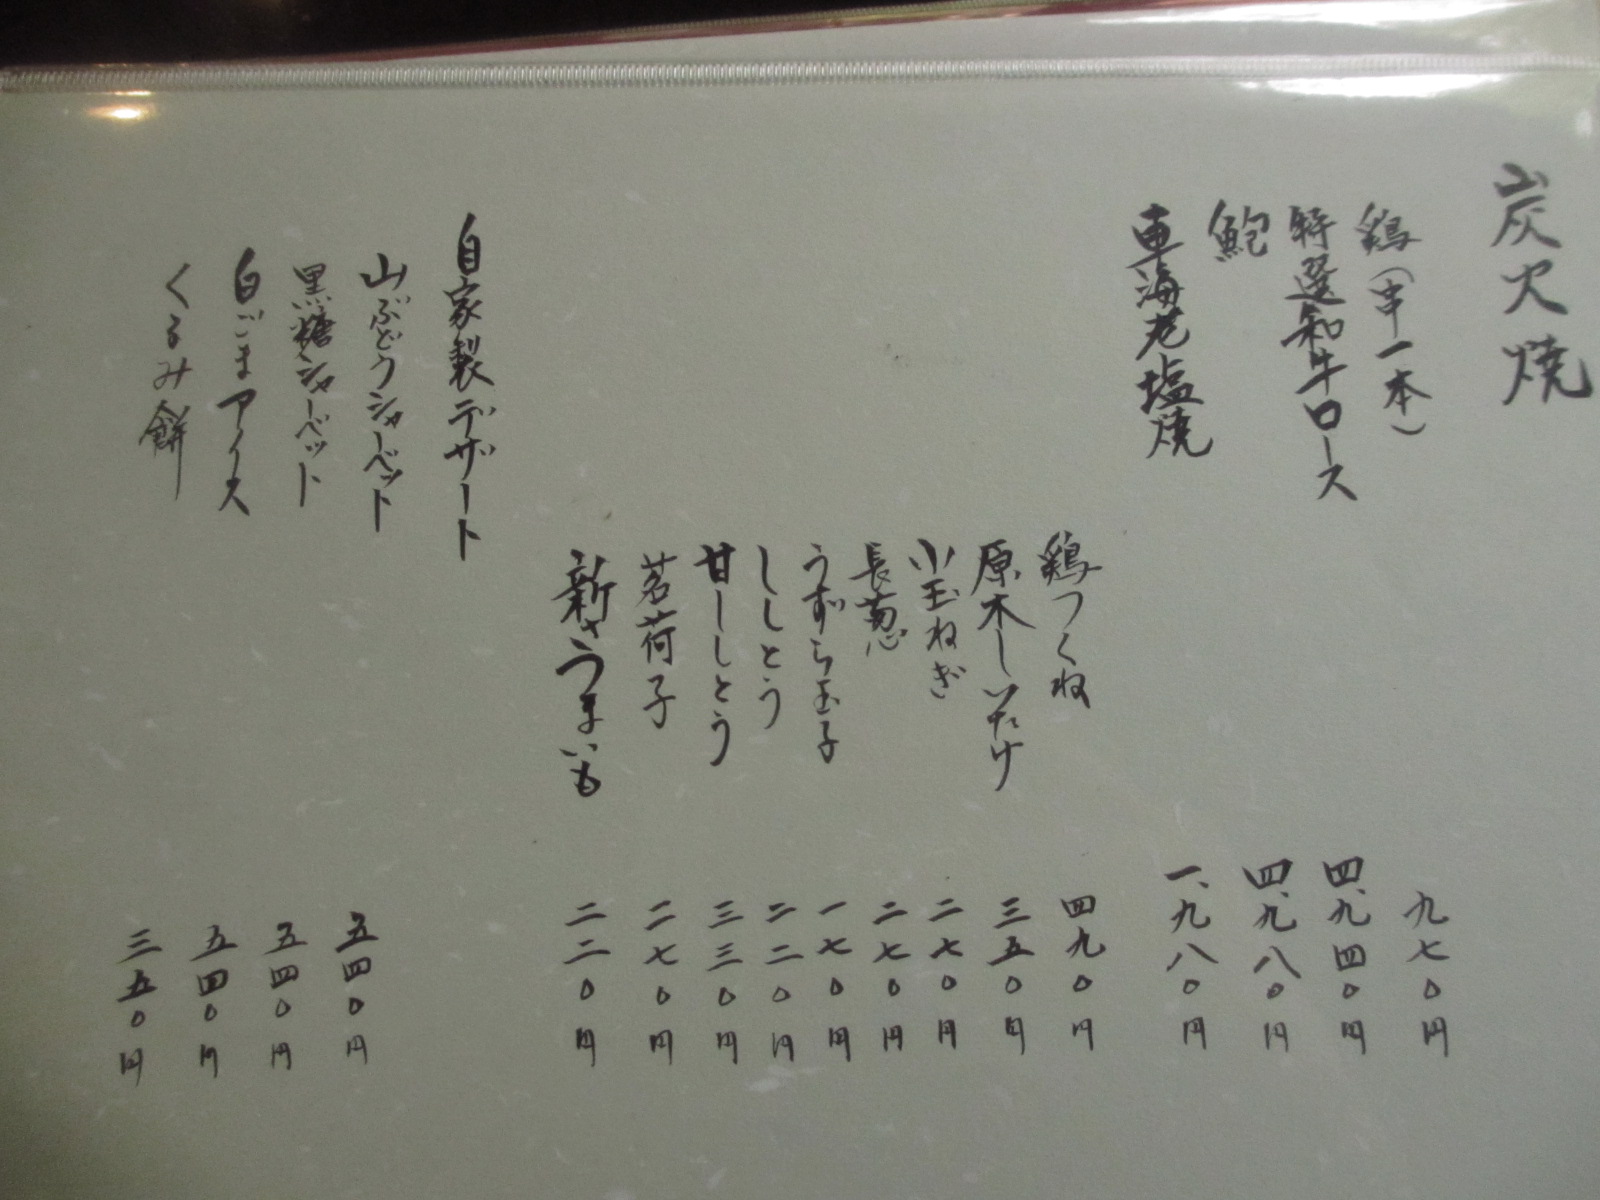 炭火焼
鶏(串一本) 九七〇円
特選和牛ロース 四、九四〇円
鮑 四、九八〇円
車海老塩焼 一、九八〇円
鶏つくね 四九〇円
原木しいたけ 三五〇円
小玉ねぎ 二七〇円
長葱 二七〇円
うずら玉子 一七〇円
ししとう 二二〇円
甘ししとう 三三〇円
茗荷子 二七〇円
新さつまいも 二二〇円
自家製デザート
山ぶどうシャーベット 五四〇円
黒糖シャーベット 五四〇円
白ごまアイス 五四〇円
くるみ餅 三五〇円